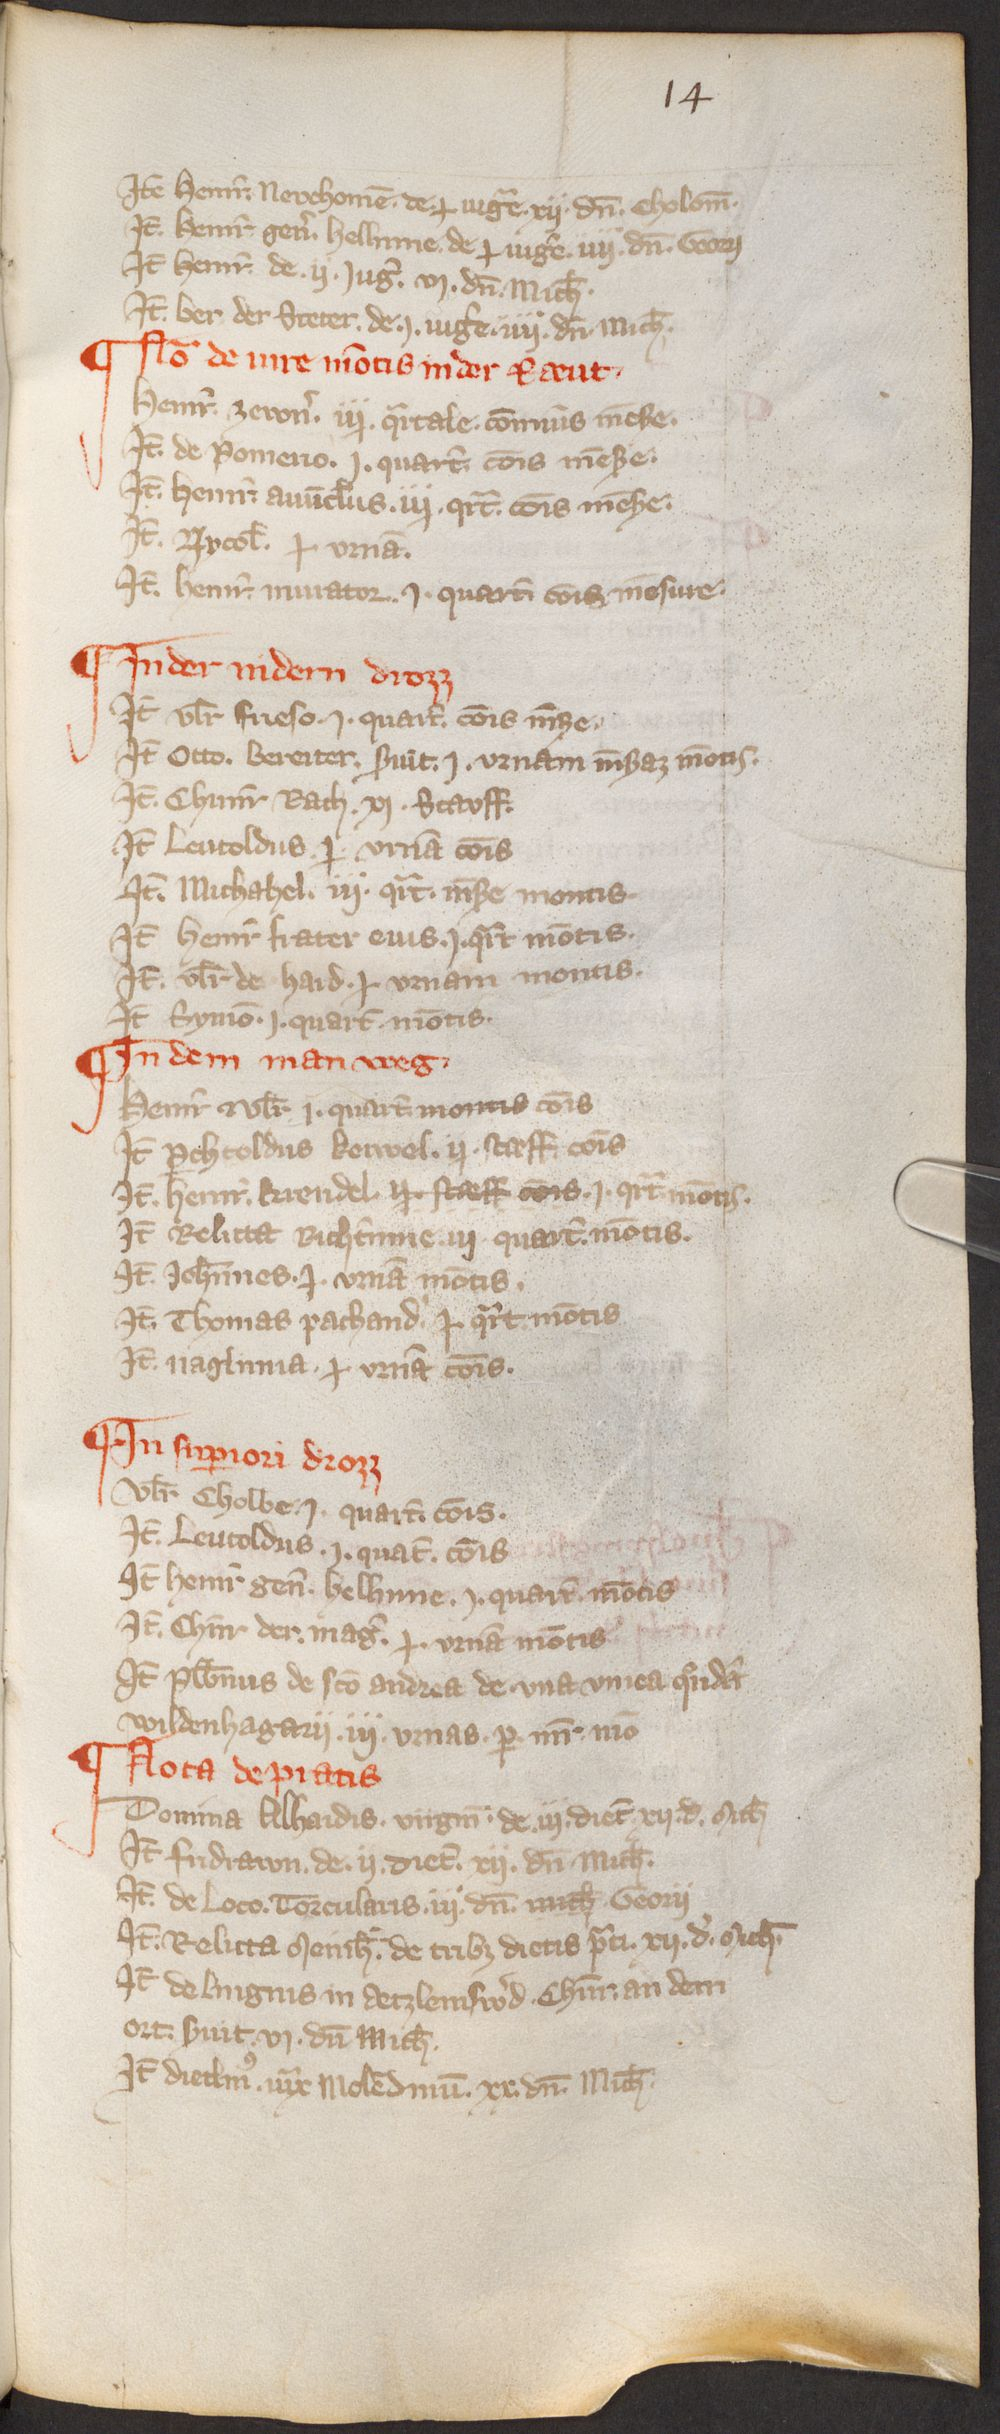 14
Ite Heinr. Newchome. de. iugre. xij. dn. Cholom.
It. heinr gen. hellinne. de iugre. iiij. dn. Georij
It heinr. de. ij. Jugr. vj. dn. Mich.
It. ber der Steter. de. j. iugre. iiij. dn. Mich.
No de iure motis in der Raeut.
Heinr. zewn. iij. qrtale. comunis mesure.
It. de Pomerio. j. quart. cois mesure.
It. heinr. auuclus. iij. qrt. cois mesure.
It. Nycol. urna.
It. heinr. murator. j. quart cois mesure.
In der nidern drozz
It vlr frieso. j. quart. cois mse.
It Otto. bereiter. suit. j. urnam msaz motis.
It. Chunr Rach. xj. Stauff.
It Leutoldus. urna cois
It. Michahel. iij. qrt. mse montis.
It heinr frater eius. j. qrt motis.
It. vlr de haid. urnam montis.
It Symo. j. quart. motis.
In dem man weg.
Heinr vlr j. quart montis cois
It Pchtoldus kerwel. ij. staff cois
It. heinr. kriendel. ij. staeff cois. j. qrt motis.
It Relicta Richtinne. iij quart. motis.
It. Johnnes. urna motis.
It. Thomas pachand. qrt motis
It. naglinna. urna cois.
In supiori drozz
Vlr Cholbe. j. quart. cois.
It. Leutoldus. j. quat. cois
It heinr gen. hellinne. j. quart. motis
It. Chunr der. mag. urna motis
It plbnus de sco andrea de una vinea qnda
wildenhagarij. iij. urnas. p.
Nota de pratis
Domina Alhaidis. virgin. de. iij. diet xij. d. Mich
It fridrawn. de. ij. diet. xij. dn Mich.
It. de Loco. Torcularis. iij. dn. mich Georij
It. Relicta Meinh. de tribz dietis pti. xij. d. Mich.
It de lingnis in aetzleinswd Chunr. an dem
ort. suit. vj. dn Mich.
It dietlm. Moledinu. xx. dn. Mich.